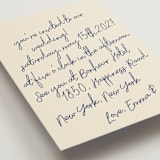 you're invited to our
wedding!
saturday, may 15th, 2021
at five o'clock in the afternoon
See you at Bonhair Hotel
1850, Happiness Road
New York, New York
Love, Emma